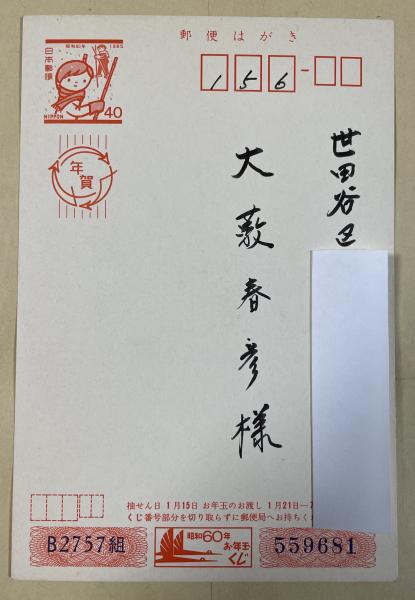 郵便はがき
昭和60年 1985
日本郵便
NIPPON
40
年賀
156
世田谷区
大藪春彦様
抽せん日 1月15日 お年玉のお渡し 1月21日―
くじ番号部分を切り取らずに郵便局へお持ちく
B2757組
昭和60年
お年玉
くじ
559681